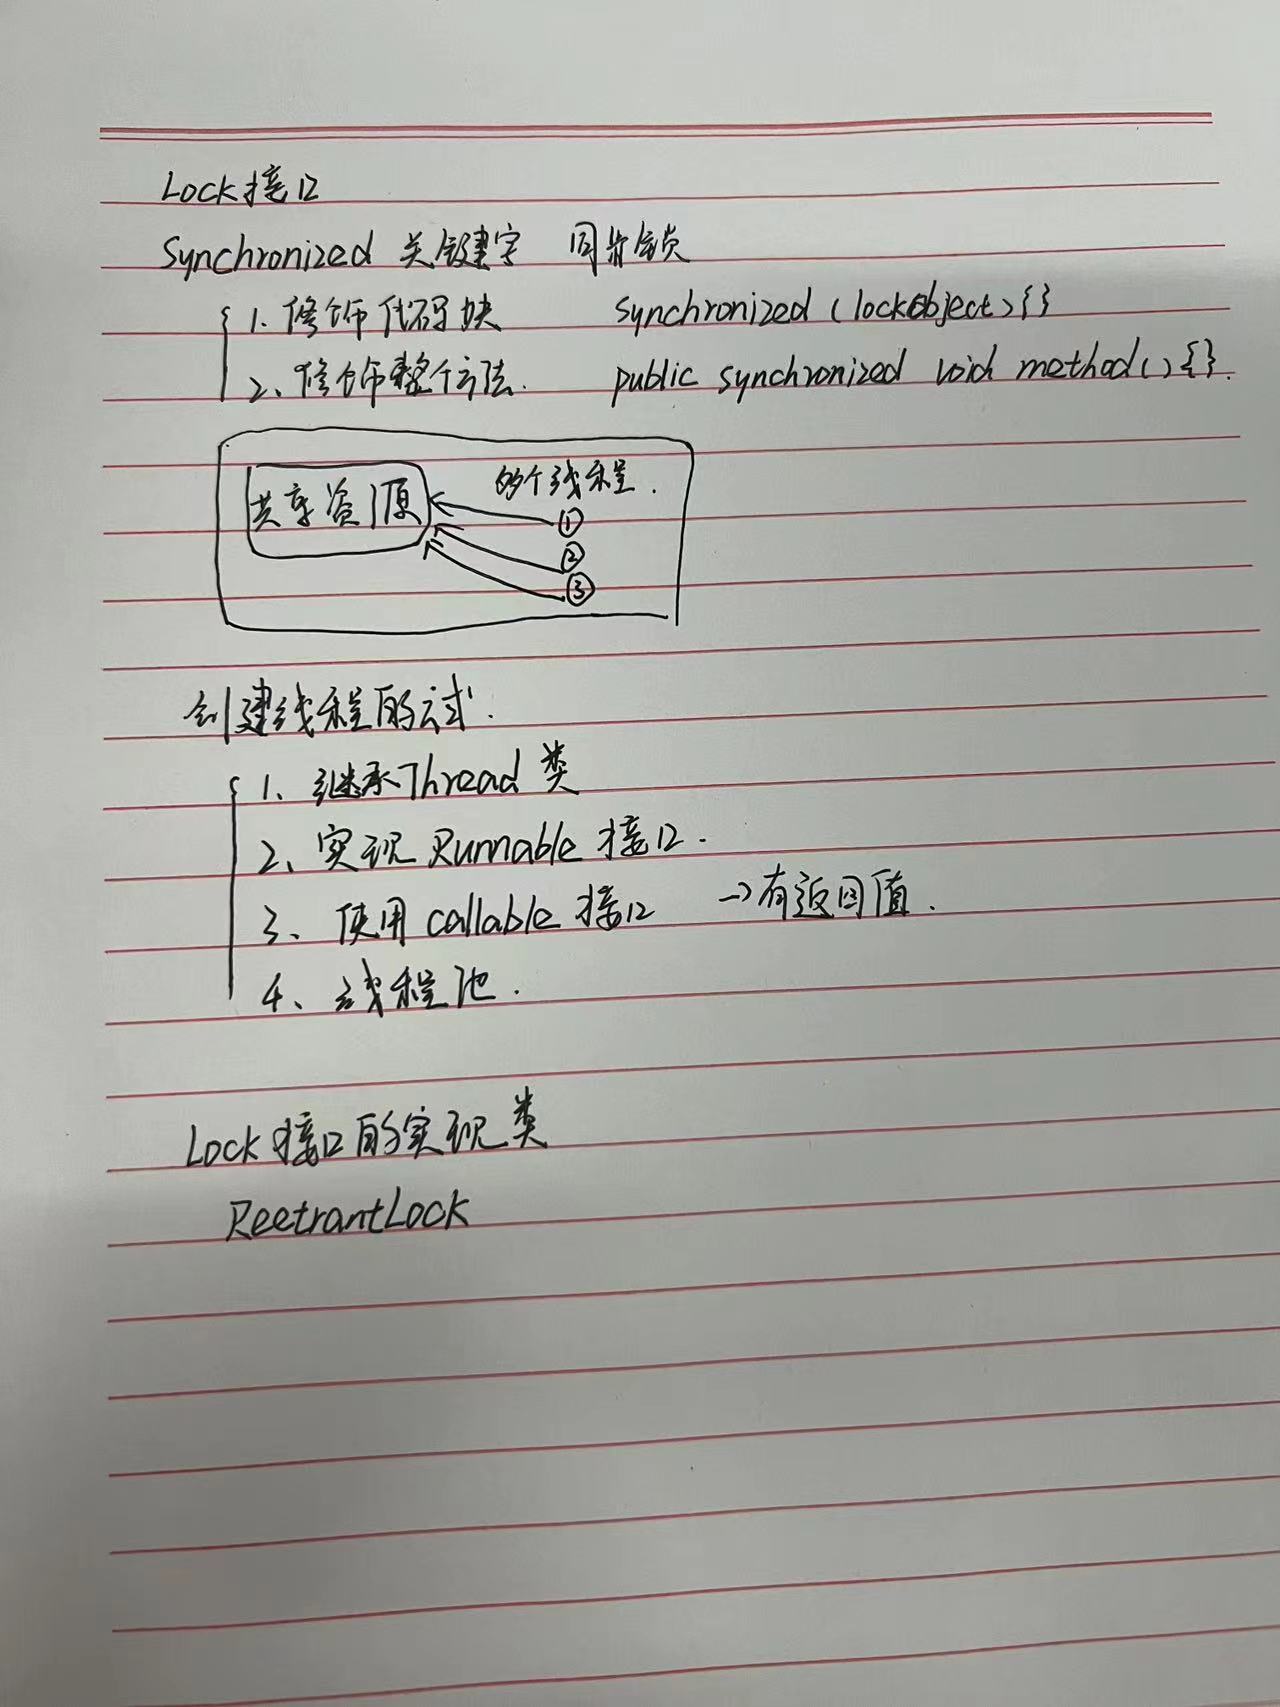 Lock接口
Synchronized 关键字 同步锁
1. 修饰代码块 synchronized (lockobject) {}
2、修饰整个方法. public synchronized void method() {}.
共享资源
多个线程.
①
②
③
创建线程的方式.
1、继承Thread类
2、实现 Runnable 接口.
3、使用 callable 接口 →有返回值.
4、线程池.
Lock接口的实现类
ReetrantLock